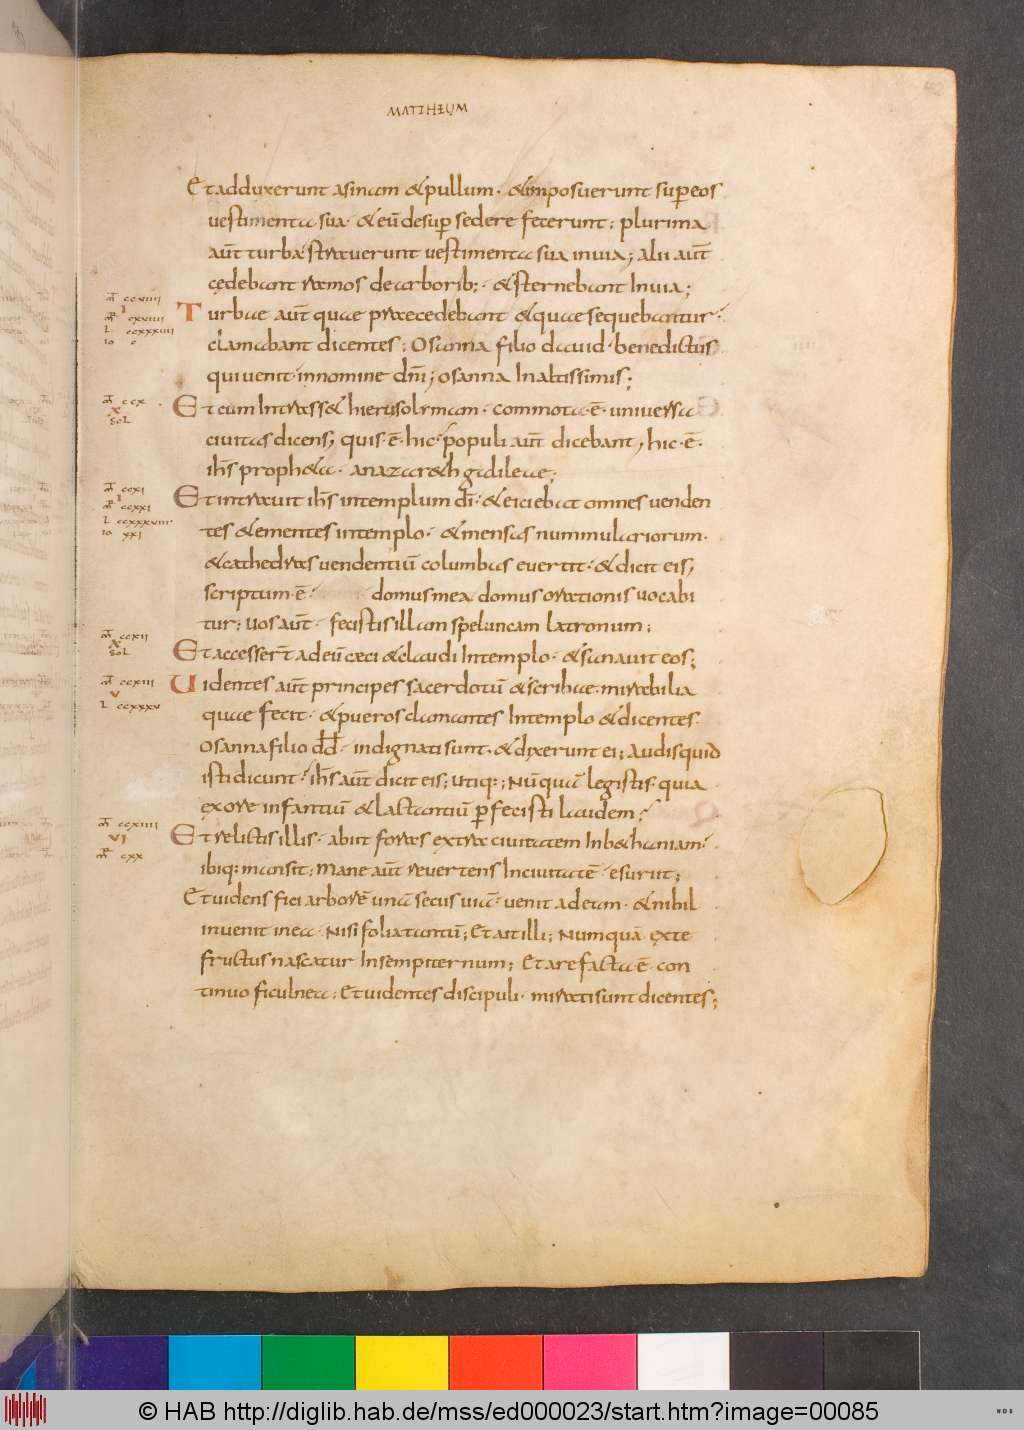 MATTHEUM
Et adduxerunt asinam & pullum · & imposuerunt sup eos
vestimenta sua · & eū desup sedere fecerunt ; plurima
aūt turba straverunt vestimenta sua in via ; alii aūt
cędebant ramos de arborib; · & sternebant In via ;
a᷃ ccviiii
Turbae aūt quae praecedebant & quae sequebantur ·
i
cxviiii
L ccxxxiiii
io c
clamabant dicentes ; Osanna filio dauid · benedictus
qui venit · in nomine dn̄i ; osanna In altissimis ;
ccx
x
Sol
Et cum Intrass& hierusolymam · commota · ē · universa
civitas dicens ; quis · ē · hic · populi aūt dicebant , hic · ē ·
ih̄s proph&a · a nazar&h galileae ;
ccxi
i
ccxxi
L ccxxxviii
io xxi
Et intravit ih̄s in templum dī · & eiciebat omnes venden
tes & ementes in templo · & mensas nummulariorum ·
& cathedras vendentiū columbas evertit · & dicit eis ,
scriptum · ē · domus mea domus orationis vocabi
tur ; vos aūt · fecistis illam speluncam latronum ;
ccxii
x
Sol
Et accesser̄t ad eū cęci & claudi In templo · & sanavit eos ;
ccxiii
v
L ccxxxv
Videntes aūt principes sacerdotū & scribae · mirabilia
quae fecit · & pueros clamantes In templo & dicentes ·
Osanna filio dd̄ · indignati sunt · & dixerunt ei ; Audis quid
isti dicunt · ih̄s aūt dicit eis ; utiq; ; Nūquā legistis · quia
ex ore infantiū & lactantiū pfecisti laudem ·
ccxiiii
vi
cxx
Et relictis illis · abiit foras extra civitatem In b&haniam ·
ibiq; mansit ; Mane aūt revertens In civitatē · esuriit ;
Et videns fici arborē unā secus viā · venit ad eam · & nihil
invenit in ea · Nisi folia tantū ; Et ait illi ; Numquā ex te
fructus nascatur In sempiternum ; Et arefacta ē · con
tinuo ficulnea ; Et videntes discipuli · mirati sunt dicentes ;
© HAB http://diglib.hab.de/mss/ed000023/start.htm?image=00085